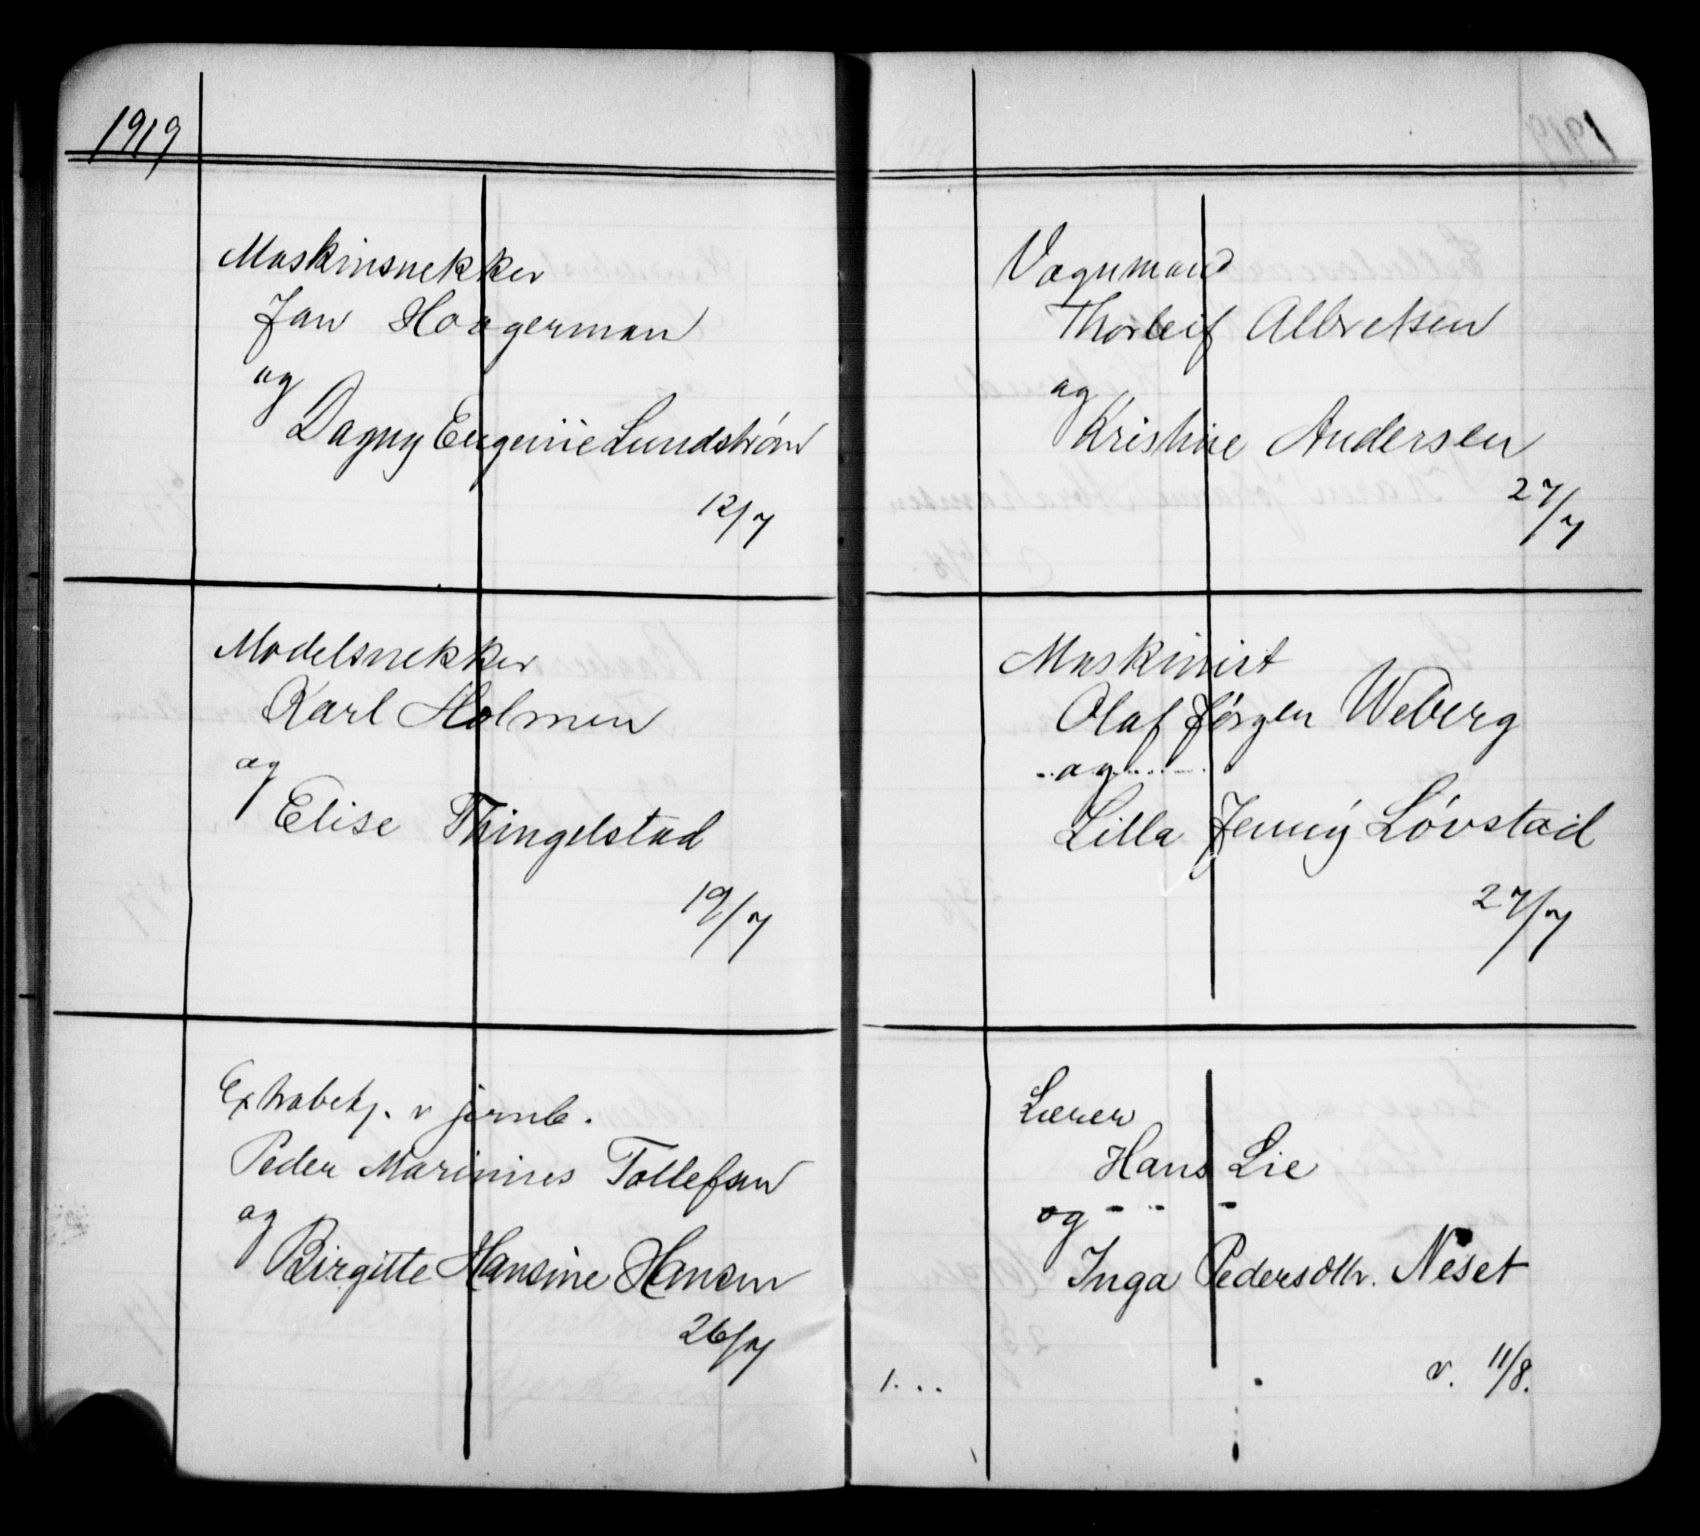 1919
Maskinsnekker
Jan Hoogerman
og
Dagny Eugenie Lundstrøm
12/7
Modelsnekker
Karl Holmen
og
Elise Thingelstad
19/7
Extrabetj. v jernb.
Peder Marinius Tollefsen
og
Birgitte Hansine Hansen
26/7
Vognmand
Thorleif Albretsen
og
Kristine Andersen
27/7
Maskinist
Olaf Jørgen Weberg
og
Lilla Jenny Løvstad
27/7
Lærer
Hans Lie
og
Inga Pedersdtr. Neset
v. 11/8.